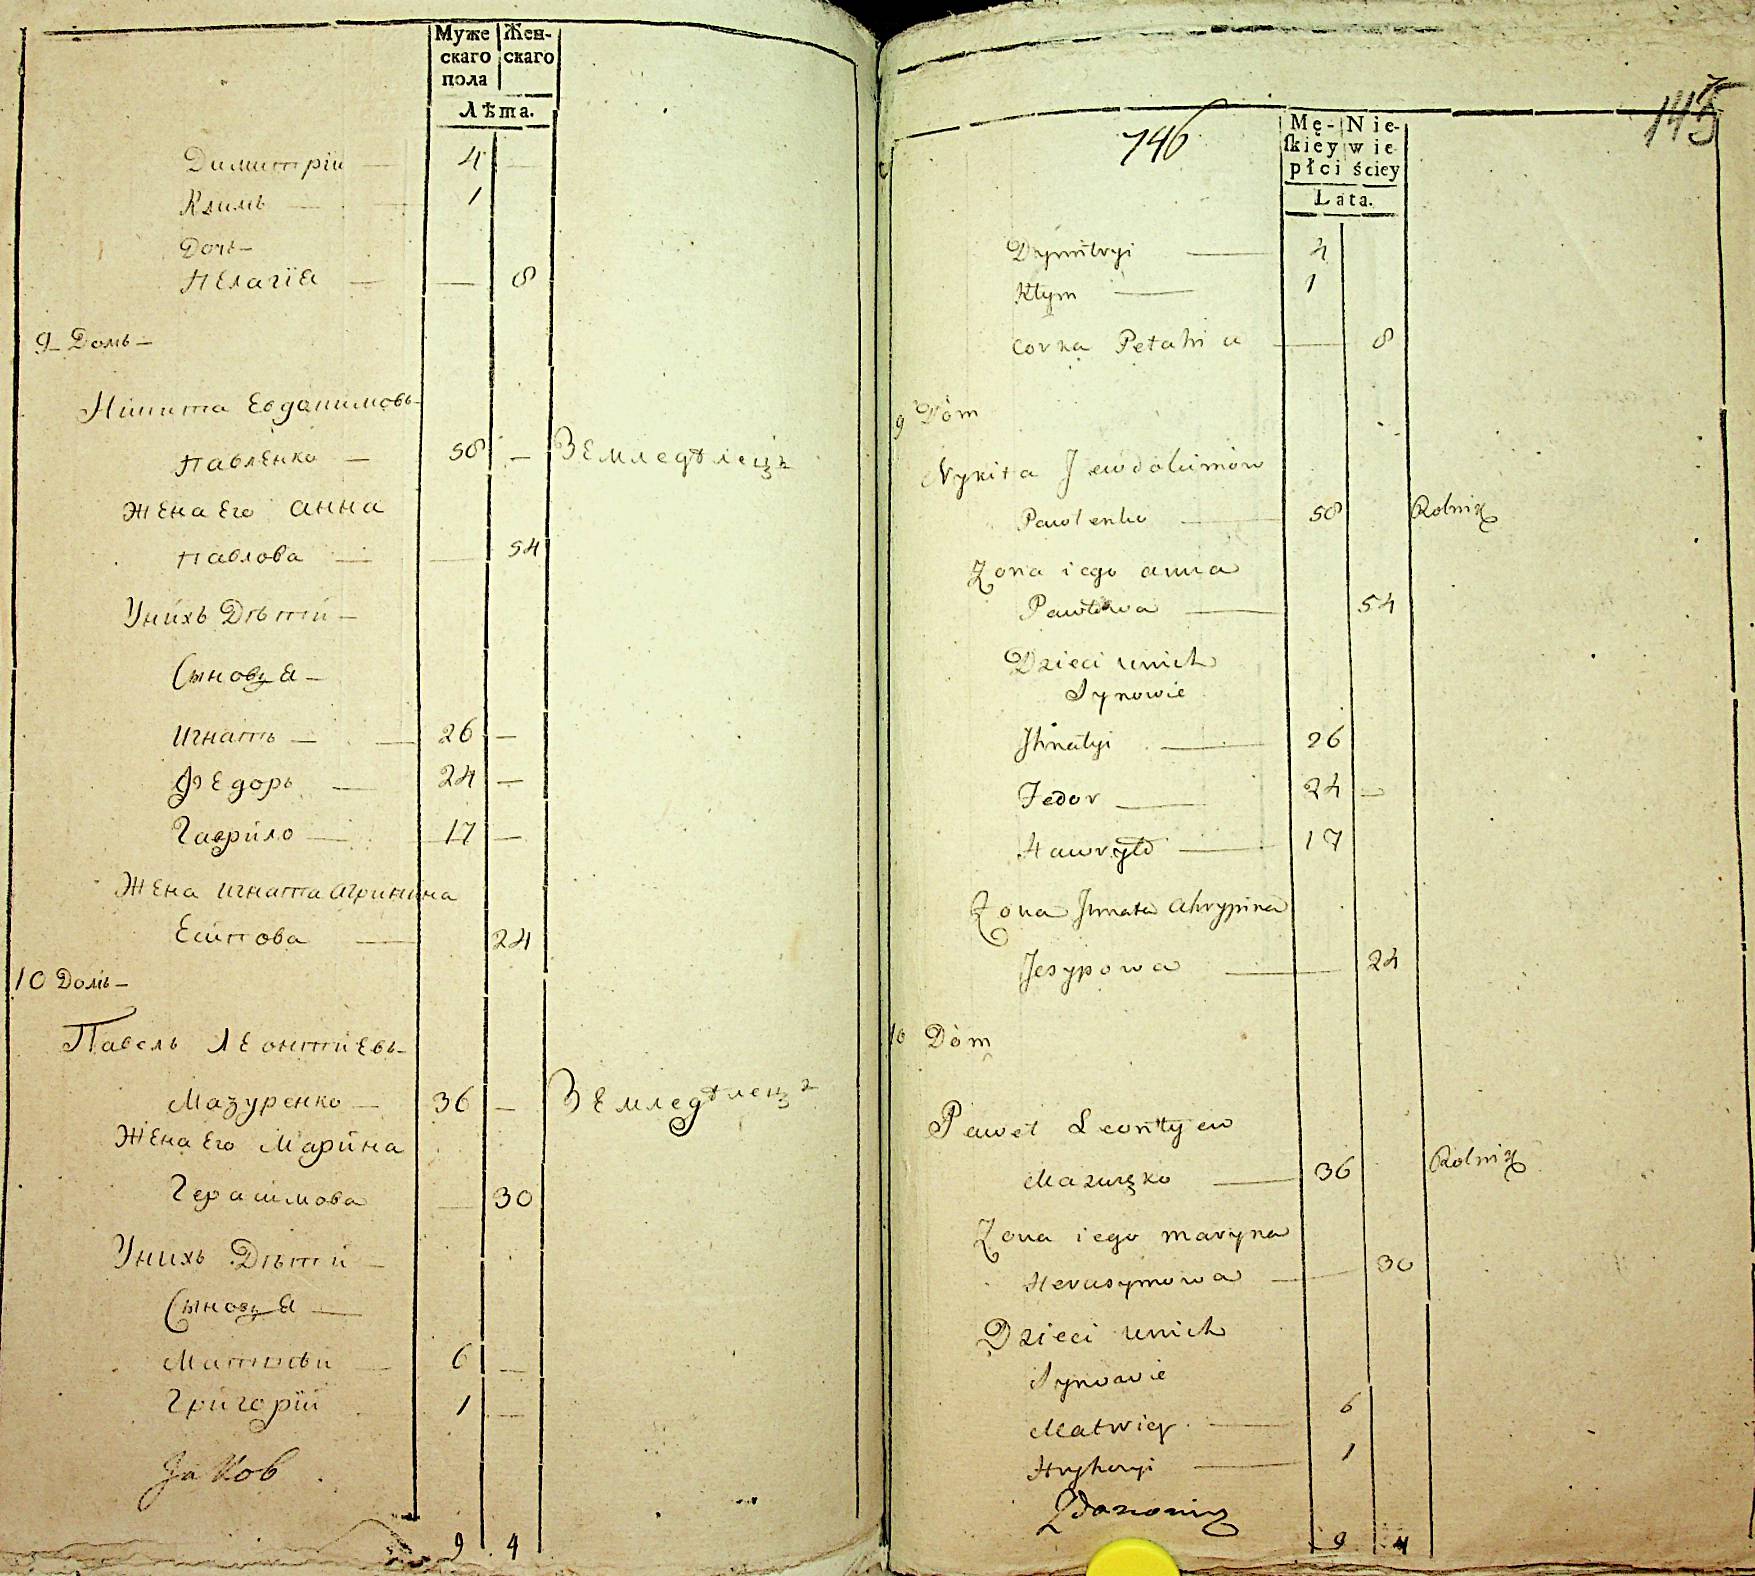 Муже Жен-
скаго скаго
пола
Лѣта.
Димитрій 4
Климъ 1
Дочь
Пелагіа 8
9 Домъ
Никита Евдокимовъ
Павленко 58 Земледѣлецъ
Жена его Анна
Павлова 54
У нихъ Дѣти
Сыновья
Игнатъ 26
Федоръ 24
Гаврило 17
Жена Игната Агрипина
Есипова 24
10 Домъ
Павелъ Леонтиевъ
Мазуренко 36 Земледѣлецъ
Жена его Марина
Герасимова 30
У нихъ Дѣти
Сыновья
Матвѣи 6
Григорій 1
Jaков
9 4
146
145
Mę- Nie-
ſkiey wie-
płci ściey
Lata.
Dymitryi 4
Kłym 1
corka Pełahia 8
9 Dóm
Nykita Jewdokimów
Pawlenko 58 Rolnik
Zona iego anna
Pawłowa 54
Dzieci unich
Synowie
Jhnatyi 26
Fedor 24
Hawryło 17
Zona Jhnata ahrypina
Jesypowa 24
10 Dóm
Paweł Leontyew
Mazuręko 36 Rolnik
Zona iego maryna
Herasymowa 30
Dzieci unich
Synowie
Matwiey 6
Hryhoryi 1
9 4